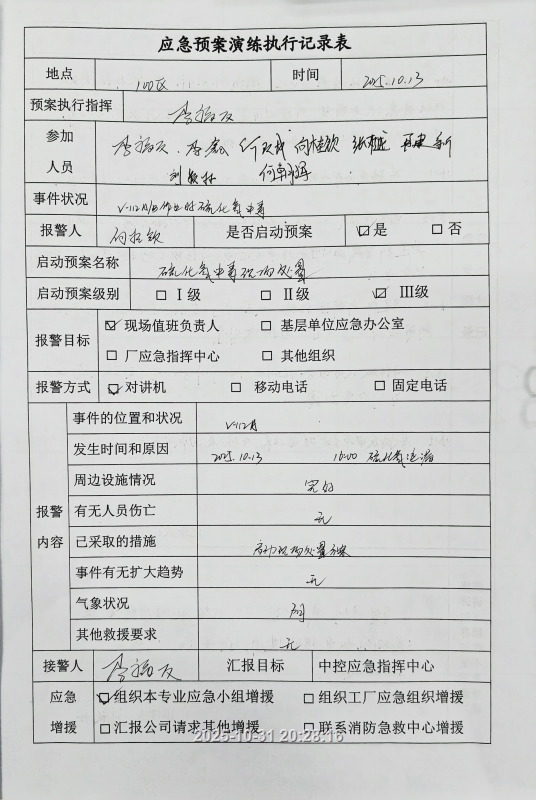 应急预案演练执行记录表
地点 100区 时间 2025.10.13
预案执行指挥
参加
人员
事件状况 硫化氢中毒
报警人 是否启动预案 ☑是 □否
启动预案名称 硫化氢中毒现场处置
启动预案级别 □Ⅰ级 □Ⅱ级 ☑Ⅲ级
报警目标 ☑现场值班负责人 □基层单位应急办公室
□厂应急指挥中心 □其他组织
报警方式 ☑对讲机 □移动电话 □固定电话
报警
内容
事件的位置和状况 V-112
发生时间和原因 2025.10.13 16:00 硫化氢泄漏
周边设施情况 完好
有无人员伤亡 无
已采取的措施 启动现场处置方案
事件有无扩大趋势 无
气象状况
其他救援要求 无
接警人 汇报目标 中控应急指挥中心
应急
增援
☑组织本专业应急小组增援 □组织工厂应急组织增援
□汇报公司请求其他增援 □联系消防急救中心增援
2025-10-31 20:28:16